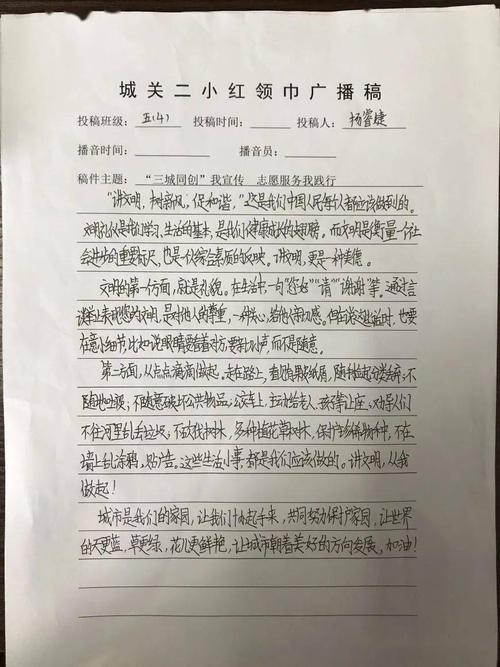 城关二小红领巾广播稿
投稿班级：五(4) 投稿时间： 投稿人：杨睿婕
播音时间： 播音员：
稿件主题：“三城同创”我宣传 志愿服务我践行
“讲文明，树新风，促和谐。”这是我们中国人民每个人都应该做到的。
文明礼仪是我们学习、生活的基本，是我们健康成长的翅膀，而文明是衡量一个社
会进步的重要标尺，也是个人综合素质的反映。讲文明，更是一种美德。
文明的第一方面，就是礼貌。在生活中一句“您好”“请”“谢谢”等。通过言
谈举止表现您的文明，是对他人的尊重，一种关心，给他人亲切感。但在说这些话时，也要
在意小细节，比如说眼睛要看着对方，要轻小声，而不是随意。
第二方面，从点点滴滴做起。走在路上，看见纸屑，随手捡起分类丢弃；不
随地吐痰，不随意破坏公共物品；公交车上，主动给老人、孩子等让座；劝导人们
不往河里乱丢垃圾，不砍伐树木，多种植花草树木，保护珍稀物种，不在
墙上乱涂鸦，贴广告。这些生活小事，都是我们应该做的。讲文明，从我
做起！
城市是我们的家园，让我们一起手来，共同努力保护家园，让世界
的天更蓝，草更绿，花儿更鲜艳，让城市朝着美好的方向发展。加油！